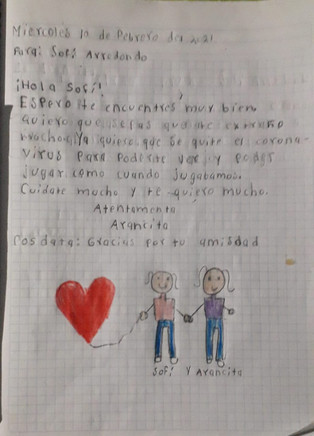 Miercoles 10 de Febrero del 2021
Para: Sofi Arredondo
¡Hola Sofi!
Espero te encuentres muy bien
quiero que sepas que te extraño
mucho. Ya quiero que se quite el corona-
virus para poderte ver y poder
jugar como cuando jugabamos.
Cuidate mucho y te quiero mucho.
Atentamente
Arancita
Posdata: Gracias por tu amistad
Sofi y Arancita